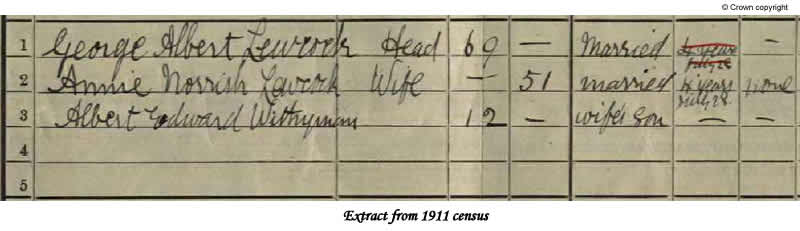 © Crown copyright
1 George Albert Lewcock Head 69 — Married 4 years —
July 28
2 Annie Norrish Lewcock Wife — 51 married 4 years None
July 28
3 Albert Edward Withyman 12 — wife's Son — —
4
5
Extract from 1911 census